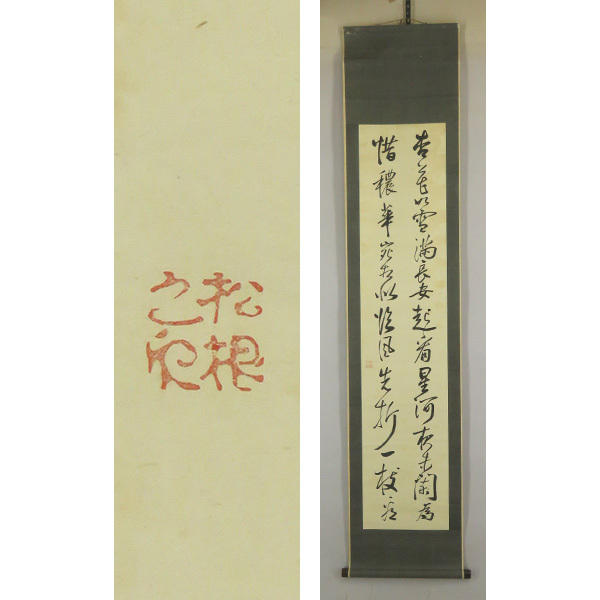 杏花如雪満長安起看星河夜未闌為
惜穠華容易似臨風先折一枝看
松根
之